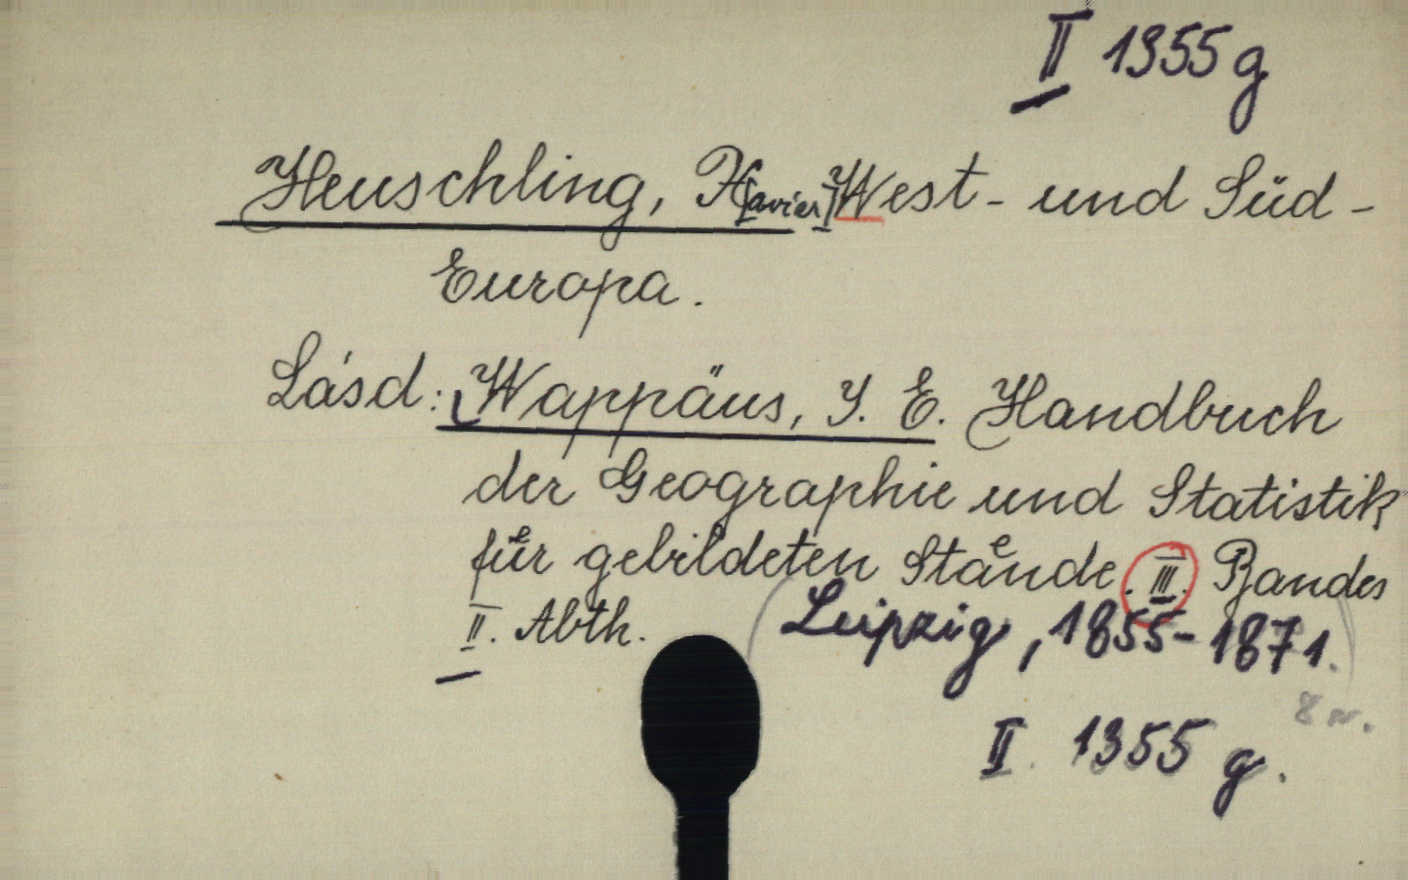 II 1355 g
Heuschling, X[avier] West- und Süd-
Europa.
Lásd: Wappäus, J. E. Handbuch
der Geographie und Statistik
für gebildeten Stände. III. Bandes
II. Abth. Leipzig, 1855-1871.
8 r.
II. 1355 g.